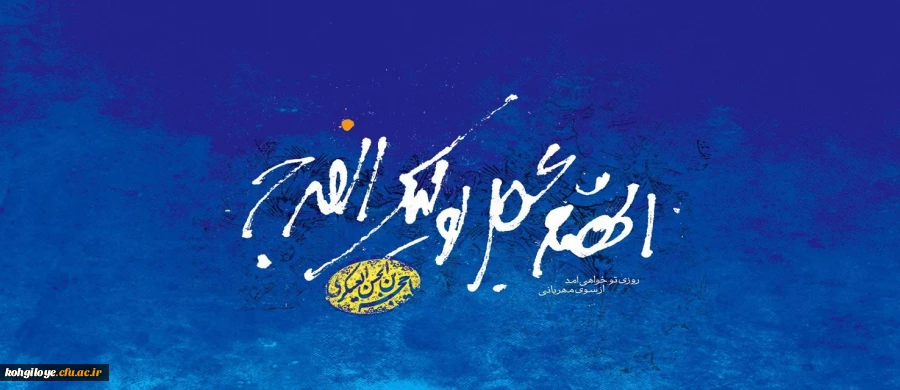 اللهم عجل لولیک الفرج
روزی تو خواهی آمد
از سوی مهربانی
حجة بن الحسن العسکری
kohgiloye.cfu.ac.ir